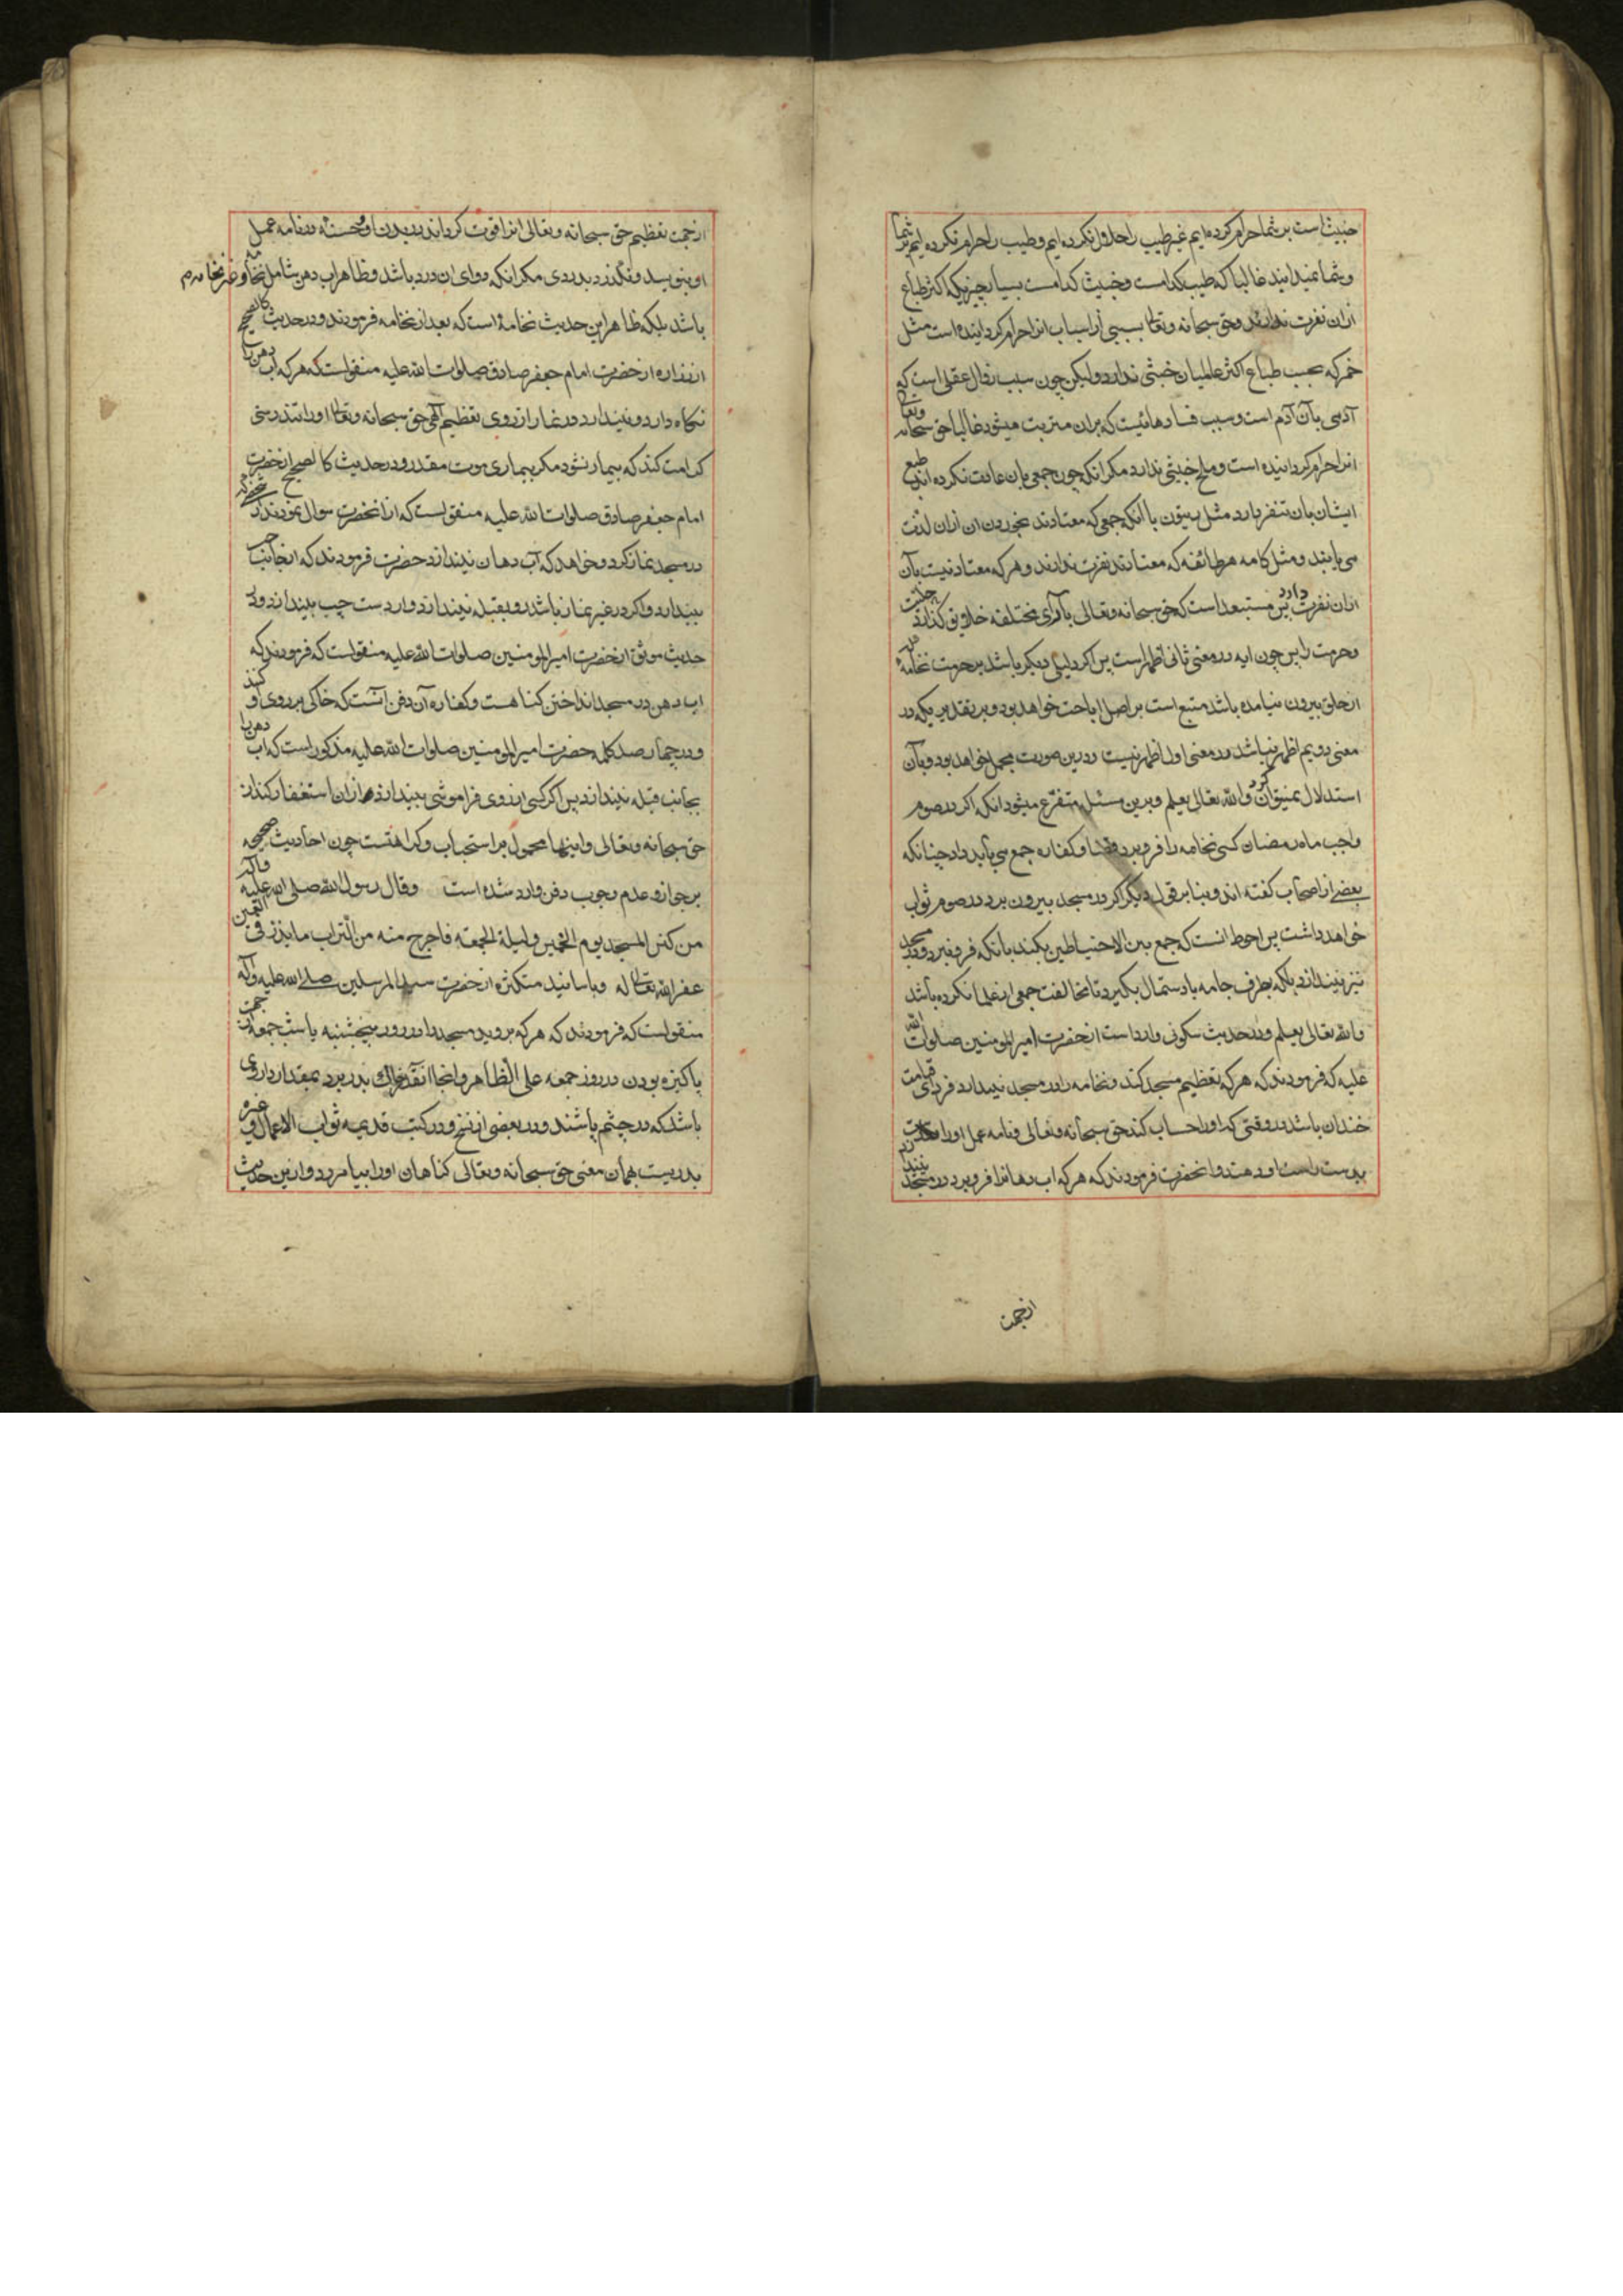 خبیث است بر شما حرام کرده ایم غیر طیب را حلال نکرده ایم و طیب را حرام نکرده ایم بر شما
و شما نمیدانید غالبا که طیب کدامست و خبیث کدامست بسیار چیزیکه اکثر طباع
از ان نفرت ندارند و حق سبحانه و تعالی بسببی از اسباب انرا حرام کردانیده است مثل
خمر که بحسب طباع اکثر عالمیان خبثی ندارد و لیکن چون سبب زوال عقلی است که
آدمی بآن آدم است و سبب فسادهائیست که بران مترتب میشود غالبا حق سبحانه و تعالی
انرا حرام کردانیده است و ملخ خبثی ندارد مکر انکه چون جمعی بان عادت نکرده اند طبع
ایشان بان تنفر دارد مثل ربیون با آنکه جمعی که معتادند بخوردن ان ازان لذت
می یابند و مثل کامه هر طائفه که معتادند نفرت ندارند و هر که معتاد نیست بآن
ازان نفرت دارد پس مستبعد است که حق سبحانه و تعالی بآرای مختلفه خلایق کذارد حلیت
و حرمت را پس چون ایه در معنی ثانی اظهر است پس اکر دلیلی دیکر باشد بر حرمت نخامه که
از حلق بیرون نیامده باشد متبع است بر اصل اباحت خواهد بود و بر تقدیریکه در
معنی دویم اظهر نباشد در معنی اول اظهر نیست و درین صورت مجمل خواهد بود و بآن
استدلال نمیتوان کرد و الله تعالی یعلم و برین مسئله متفرع میشود انکه اکر در صوم
واجب ماه رمضان کسی نخامه را فرو برد قضا و کفاره جمع می باید داد چنانکه
بعضی از اصحاب کفته اند و بنا بر قول دیکر اکر در مسجد بیرون برد در صوم ثواب
خواهد داشت پس احوط انست که جمع بین الاحتیاطین بکند بانکه فرو نبرد و در مسجد
نیز نیندازد بلکه بطرف جامه یا دستمال بکیرد تا مخالفت جمعی از علما نکرده باشد
و الله تعالی یعلم و در حدیث سکونی وارد است از حضرت امیر المومنین صلوات الله
علیه که فرمودند که هر که تعظیم مسجد کند و نخامه را در مسجد نیندازد فردای قیامت
خندان باشد در وقتی که او را حساب کند حق سبحانه و تعالی و نامه عمل او را
بدست راست او دهند و انحضرت فرمودند که هر که اب دهانرا فرو برد در مسجد
ازجهت
ازجهت تعظیم حق سبحانه و تعالی انرا قوت کرداند در بدن او و حسنه در نامه عمل
او بنویسد و نکذرد بدردی مکر انکه دوای ان درد باشد و ظاهرا اب دهن شامل نخامه و غیر نخامه هم
باشد بلکه ظاهر این حدیث نخامه است که بعد از نخامه فرمودند و در حدیث کالصحیح
از زراره از حضرت امام جعفر صادق صلوات الله علیه منقولست که هر که اب دهن را
نکاه دارد و نیندازد در نماز از روی تعظیم الهی حق سبحانه و تعالی او را تندرستی
کرامت کند که بیمار نشود مکر بیماری موت مقدر و در حدیث کالصحیح از حضرت
امام جعفر صادق صلوات الله علیه منقولست که از انحضرت سوال نمودند از شخصی که
در مسجد نماز کرد و خواهد که آب دهان بیندازد حضرت فرمودند که از جانب چپ
بیندازد و اکر در غیر نماز باشد رو بقبله نیندازد و از دست چپ بیندازد و در
حدیث موثق از حضرت امیر المومنین صلوات الله علیه منقولست که فرمودند که
اب دهن در مسجد انداختن کناهست و کفاره آن دفن آنست که خاکی بر روی او کنند
و در چهار صد کلمه حضرت امیر المومنین صلوات الله علیه مذکور است که اب دهن را
بجانب قبله نیندازد پس اکر کسی از روی فراموشی بیندازد ازان استغفار کند از
حق سبحانه و تعالی و اینها محمول بر استحباب و کراهتست چون احادیث صحیحه
بر جواز و عدم وجوب دفن وارد شده است و قال رسول الله صلی الله علیه و آله
من کنس المسجد یوم الخمیس و لیلة الجمعة فاخرج منه من التراب ما یذر فی العین
غفر الله تعالی له و باسانید متکثره از حضرت سید المرسلین صلی الله علیه و آله
منقولست که فرمودند که هر که بروبد مسجد را در روز پنجشنبه یا شب جمعه از جهت
پاکیزه بودن در روز جمعه علی الظاهر و انجا انقدر خاک بدر برد بمقدار داروی
باشد که در چشم پاشند و در بعضی از نسخ و در کتب قدیمه ثواب الاعمال و غیره
بدرستی همان معنی حق سبحانه و تعالی کناهان او را بیامرزد و ازین حدیث